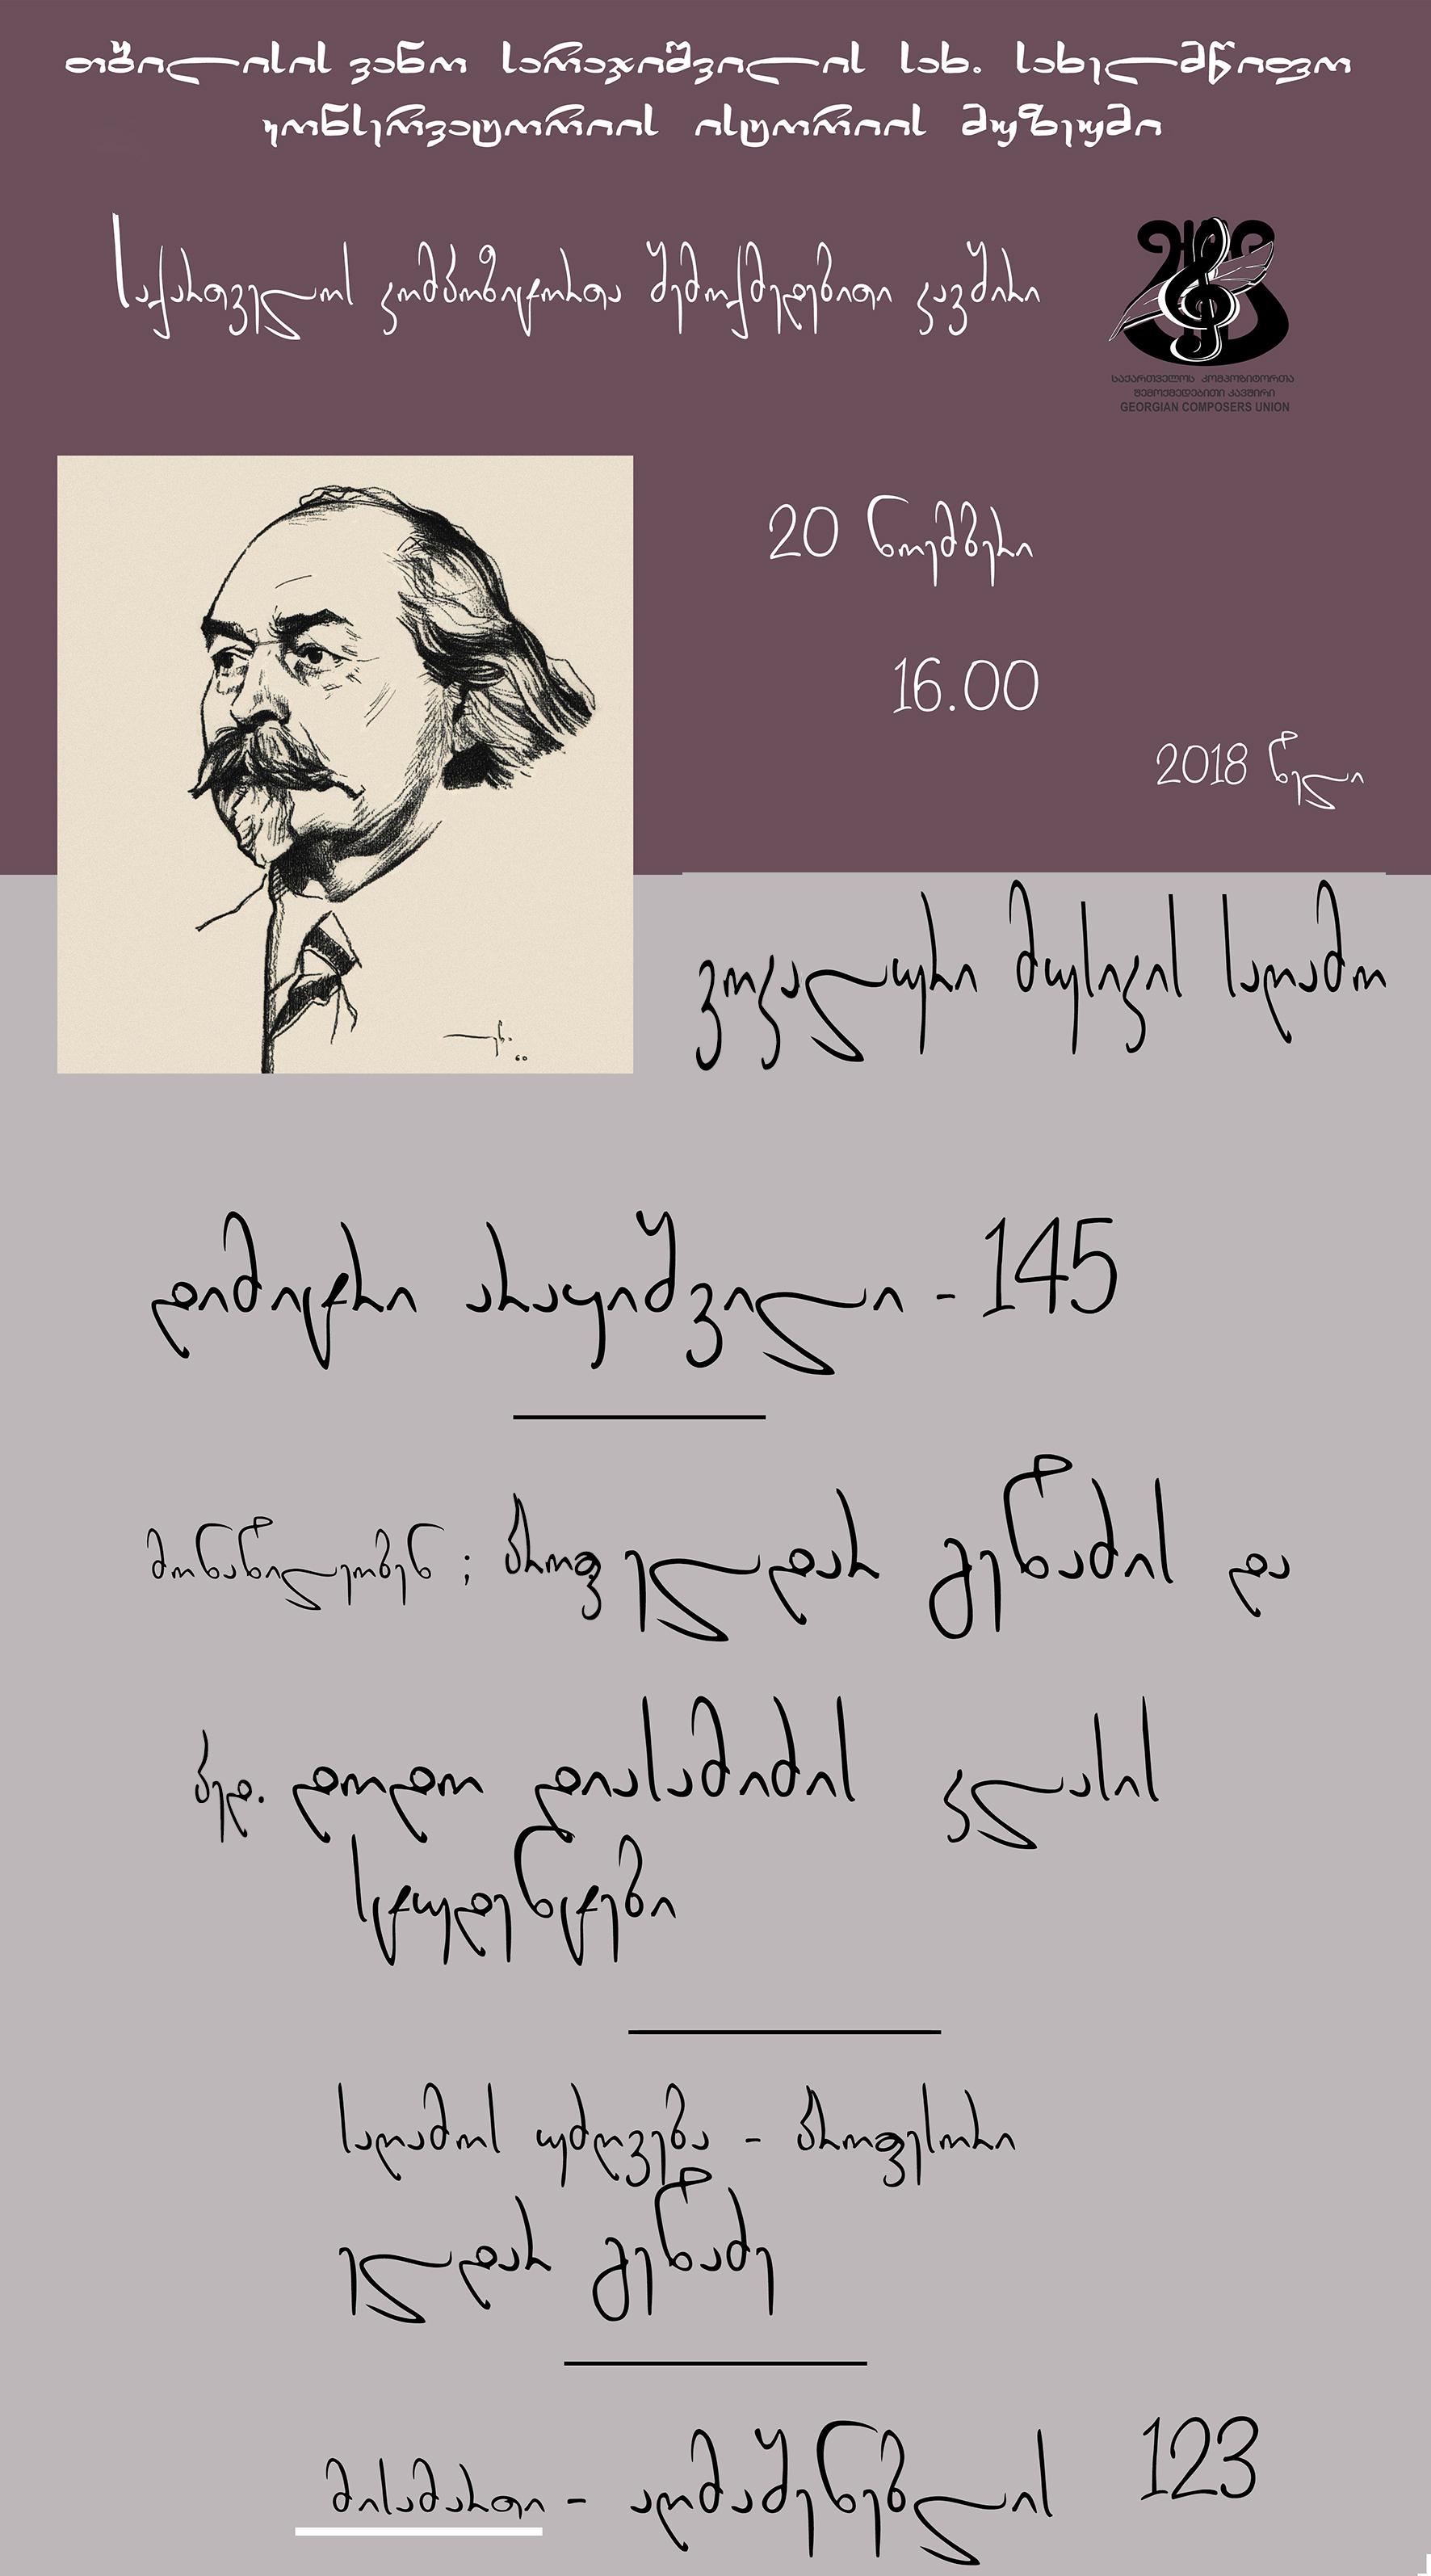 თბილისის ვანო სარაჯიშვილის სახ. სახელმწიფო
კონსერვატორიის ისტორიის მუზეუმი
საქართველოს კომპოზიტორთა შემოქმედებითი კავშირი
საქართველოს კომპოზიტორთა
შემოქმედებითი კავშირი
GEORGIAN COMPOSERS UNION
20 ნოემბერი
16.00
2018 წელი
ვოკალური მუსიკის საღამო
დიმიტრი არაყიშვილი - 145
მონაწილეობენ ; პროფ ელდარ გეწაძის და
პედ. დოდო დიასამიძის კლასის
სტუდენტები
საღამოს უძღვება - პროფესორი
ელდარ გეწაძე
მისამართი - აღმაშენებლის 123